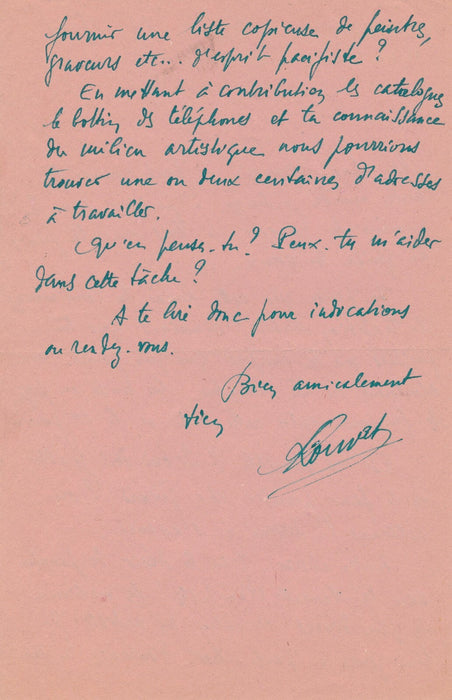 fournir une liste copieuse de peintres,
graveurs etc... d'esprit pacifiste ?
En mettant à contribution les catalogues
le bottin des téléphones et ta connaissance
du milieu artistique nous pourrions
trouver une ou deux centaines d'adresses
à travailler.
Qu'en penses-tu ? Peux-tu m'aider
dans cette tâche ?
A te lire donc pour indications
ou rendez-vous.
Bien amicalement
tien
Louvet